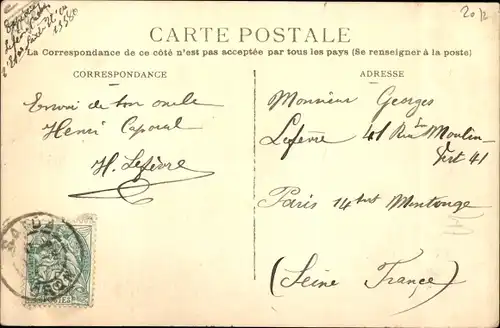 20/2
CARTE POSTALE
La Correspondance de ce côté n'est pas acceptée par tous les pays (Se renseigner à la poste)
CORRESPONDANCE
ADRESSE
Envoi de ton oncle
Henri Caporal
H. Lefèvre
Monsieur Georges
Lefèvre 41 Rue du Moulin-
Vert 41
Paris 14 Montrouge
(Seine France)
POSTES